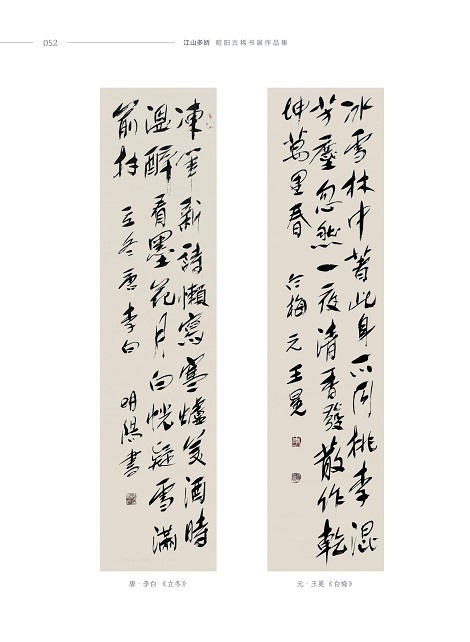 052
江山多娇 明阳古稀书展作品集
凍筆新詩懶寫寒爐美酒時
溫醉看墨花月白恍疑雪滿
前村 立冬 唐 李白 明陽書
冰雪林中著此身不同桃李混
芳塵忽然一夜清香發散作乾
坤萬里春 白梅 元 王冕
唐·李白《立冬》
元·王冕《白梅》